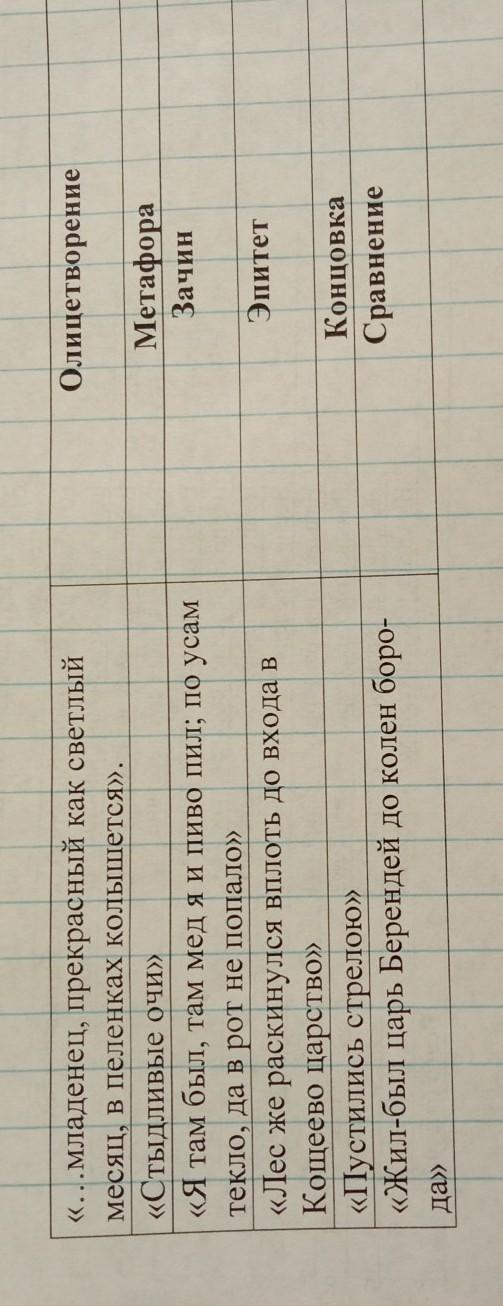 «…младенец, прекрасный как светлый
месяц, в пеленках колышется».
Олицетворение
«Стыдливые очи»
Метафора
«Я там был, там мед я и пиво пил; по усам
текло, да в рот не попало»
Зачин
«Лес же раскинулся вплоть до входа в
Кощеево царство»
Эпитет
«Пустились стрелою»
Концовка
«Жил-был царь Берендей до колен боро-
да»
Сравнение